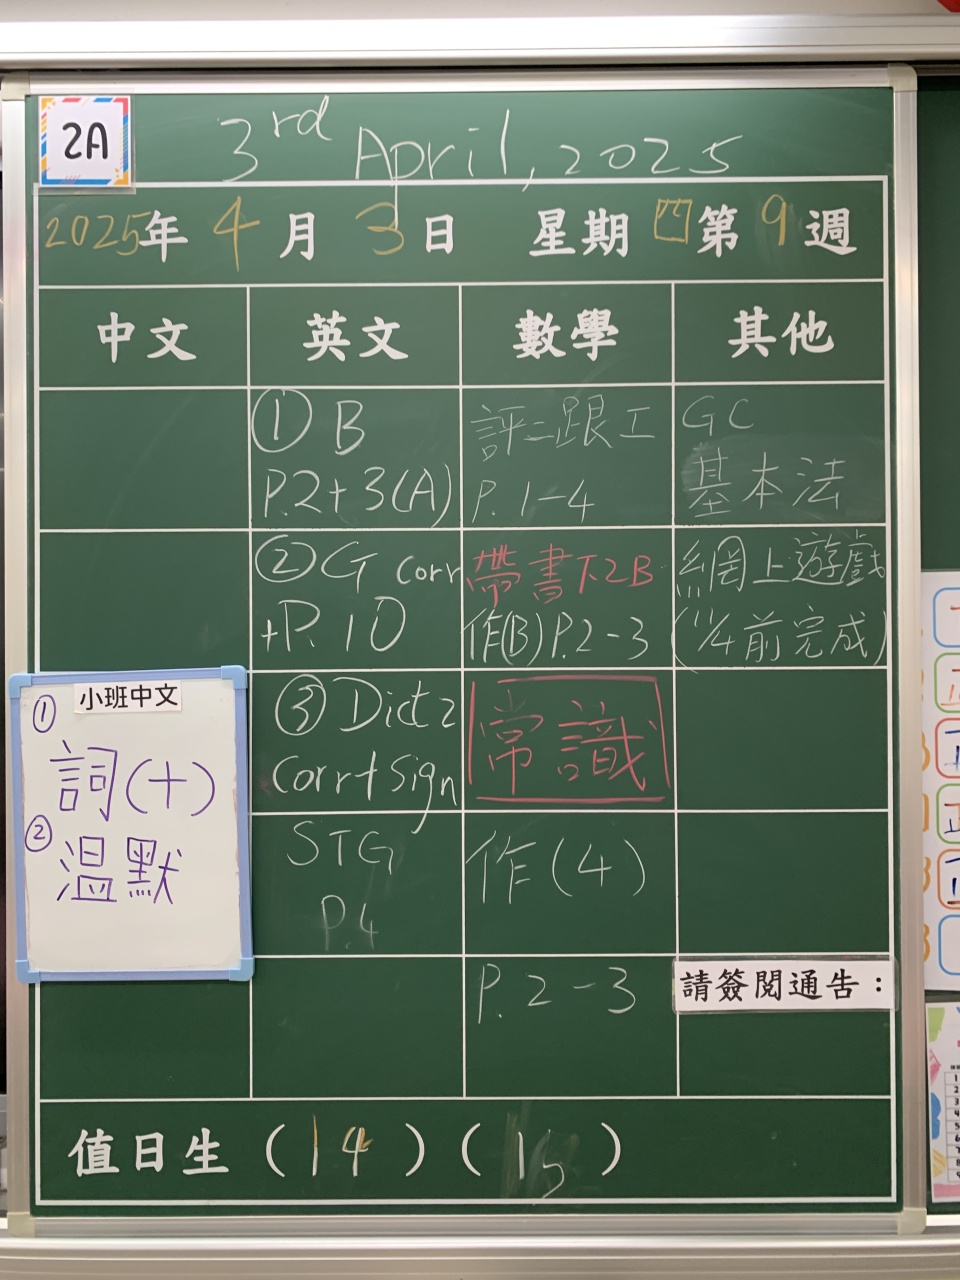 2A
3rd April, 2025
2025年 4月 3日 星期四 第9週
中文 英文 數學 其他
① B
P.2+3(A)
② G corr
+P.10
③ Dict 2
Corr+Sign
STG
P.4
評二跟工
P. 1-4
帶書下2B
作(B) P.2-3
常識
作(4)
P. 2-3
GC
基本法
網上遊戲
(11/4前完成)
請簽閱通告：
小班中文
① 詞(十)
② 溫默
值日生 (14) (15)